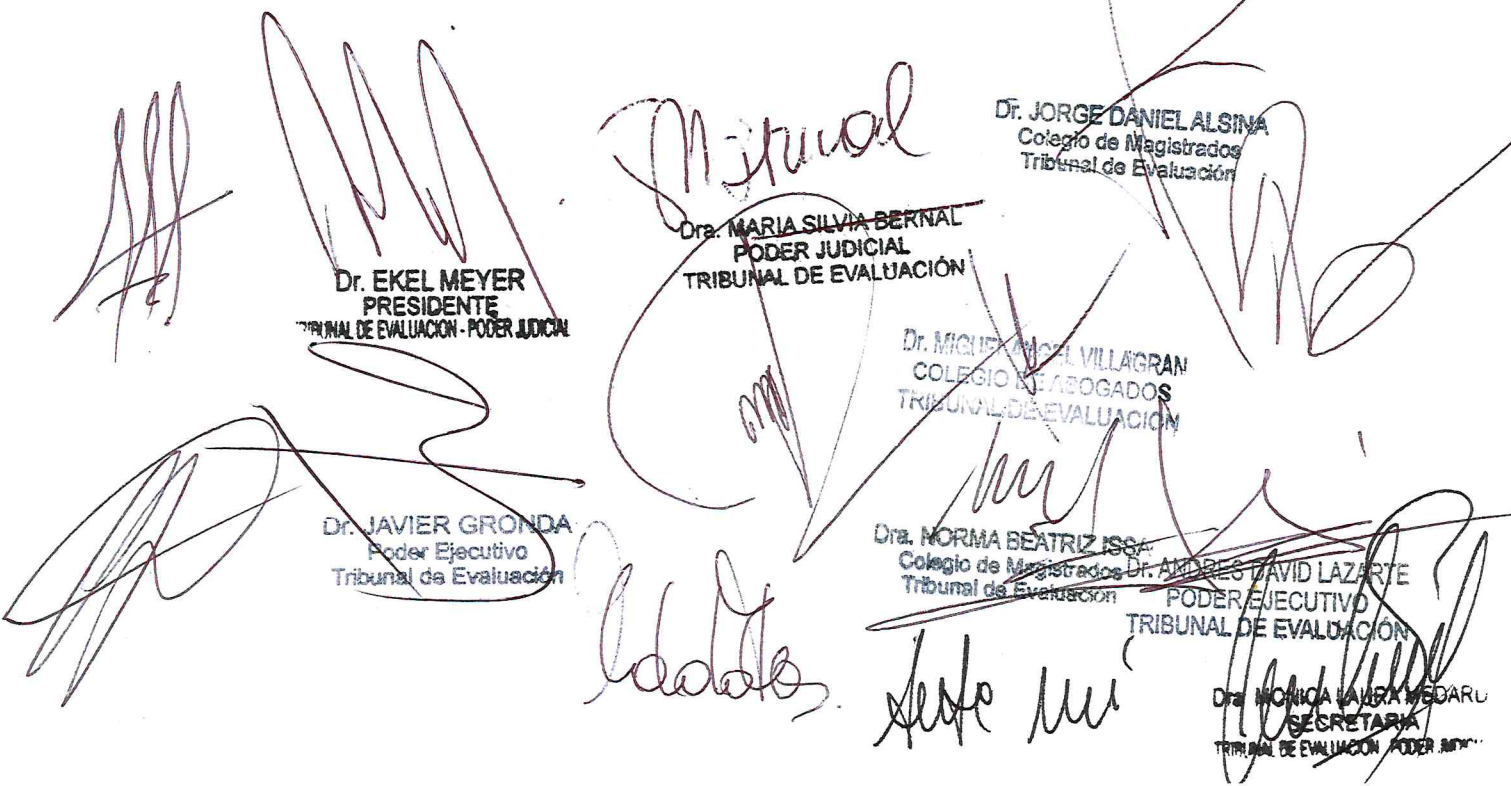 Dr. EKEL MEYER
PRESIDENTE
TRIBUNAL DE EVALUACION - PODER JUDICIAL
Dra. MARIA SILVIA BERNAL
PODER JUDICIAL
TRIBUNAL DE EVALUACIÓN
Dr. JORGE DANIEL ALSINA
Colegio de Magistrados
Tribunal de Evaluación
Dr. MIGUEL ANGEL VILLAGRAN
COLEGIO DE ABOGADOS
TRIBUNAL DE EVALUACIÓN
Dr. JAVIER GRONDA
Poder Ejecutivo
Tribunal de Evaluación
Dra. NORMA BEATRIZ ISSA
Colegio de Magistrados
Tribunal de Evaluación
Dr. ANDRES DAVID LAZARTE
PODER EJECUTIVO
TRIBUNAL DE EVALUACIÓN
Ante mi
Dra. MONICA LAURA
SECRETARIA
TRIBUNAL DE EVALUACION PODER